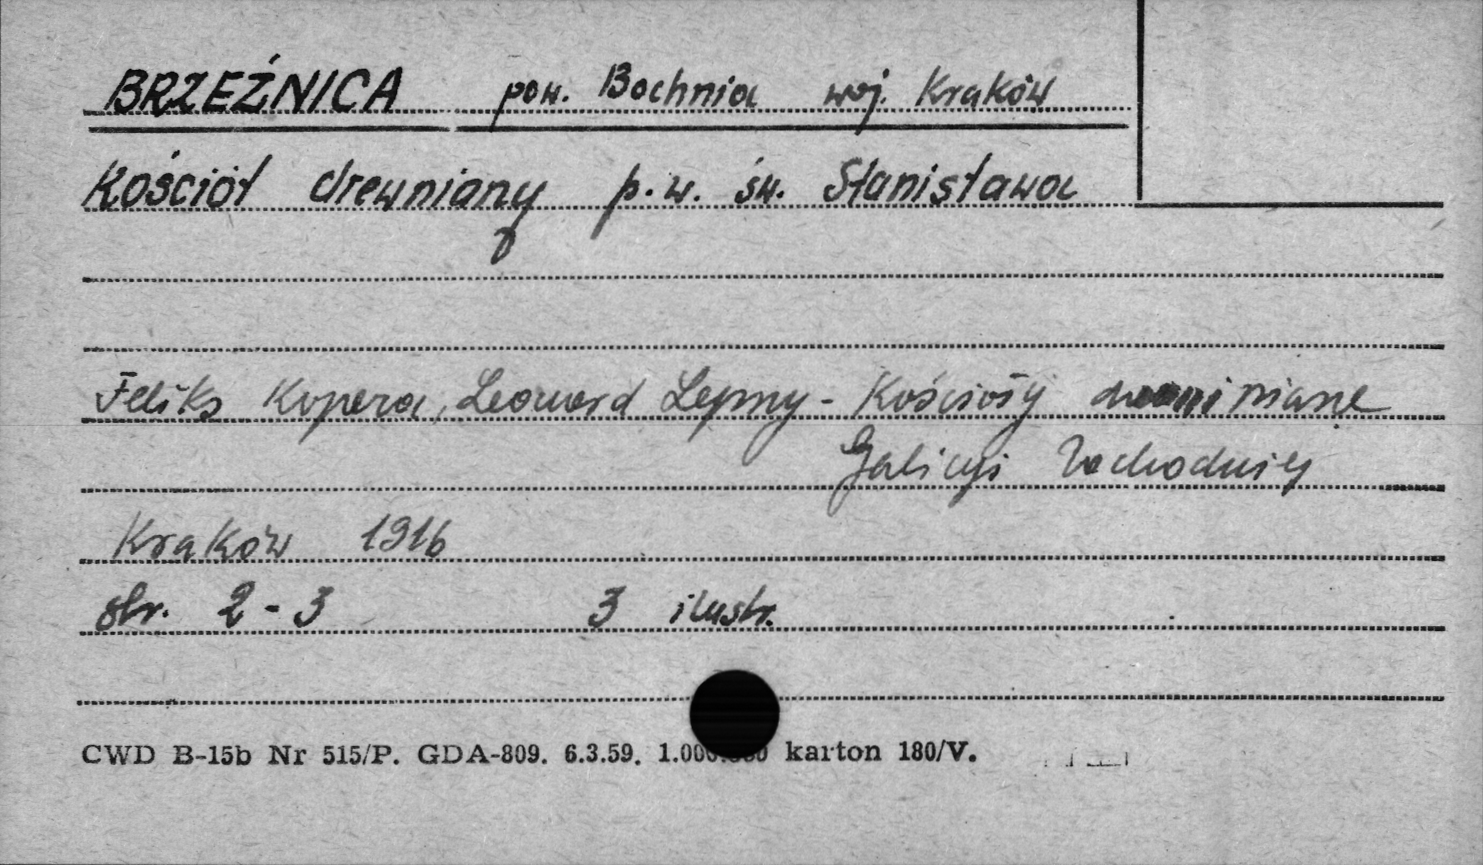 BRZEŹNICA pow. Bochnia woj. Kraków
Kościół drewniany p.w. św. Stanisława
Feliks Kopera, Leonard Lepszy - Kościoły drewniane
Galicyi Zachodniej
Kraków 1916
str. 2-3 3 ilustr.
CWD B-15b Nr 515/P. GDA-809. 6.3.59. 1.000.000 karton 180/V.